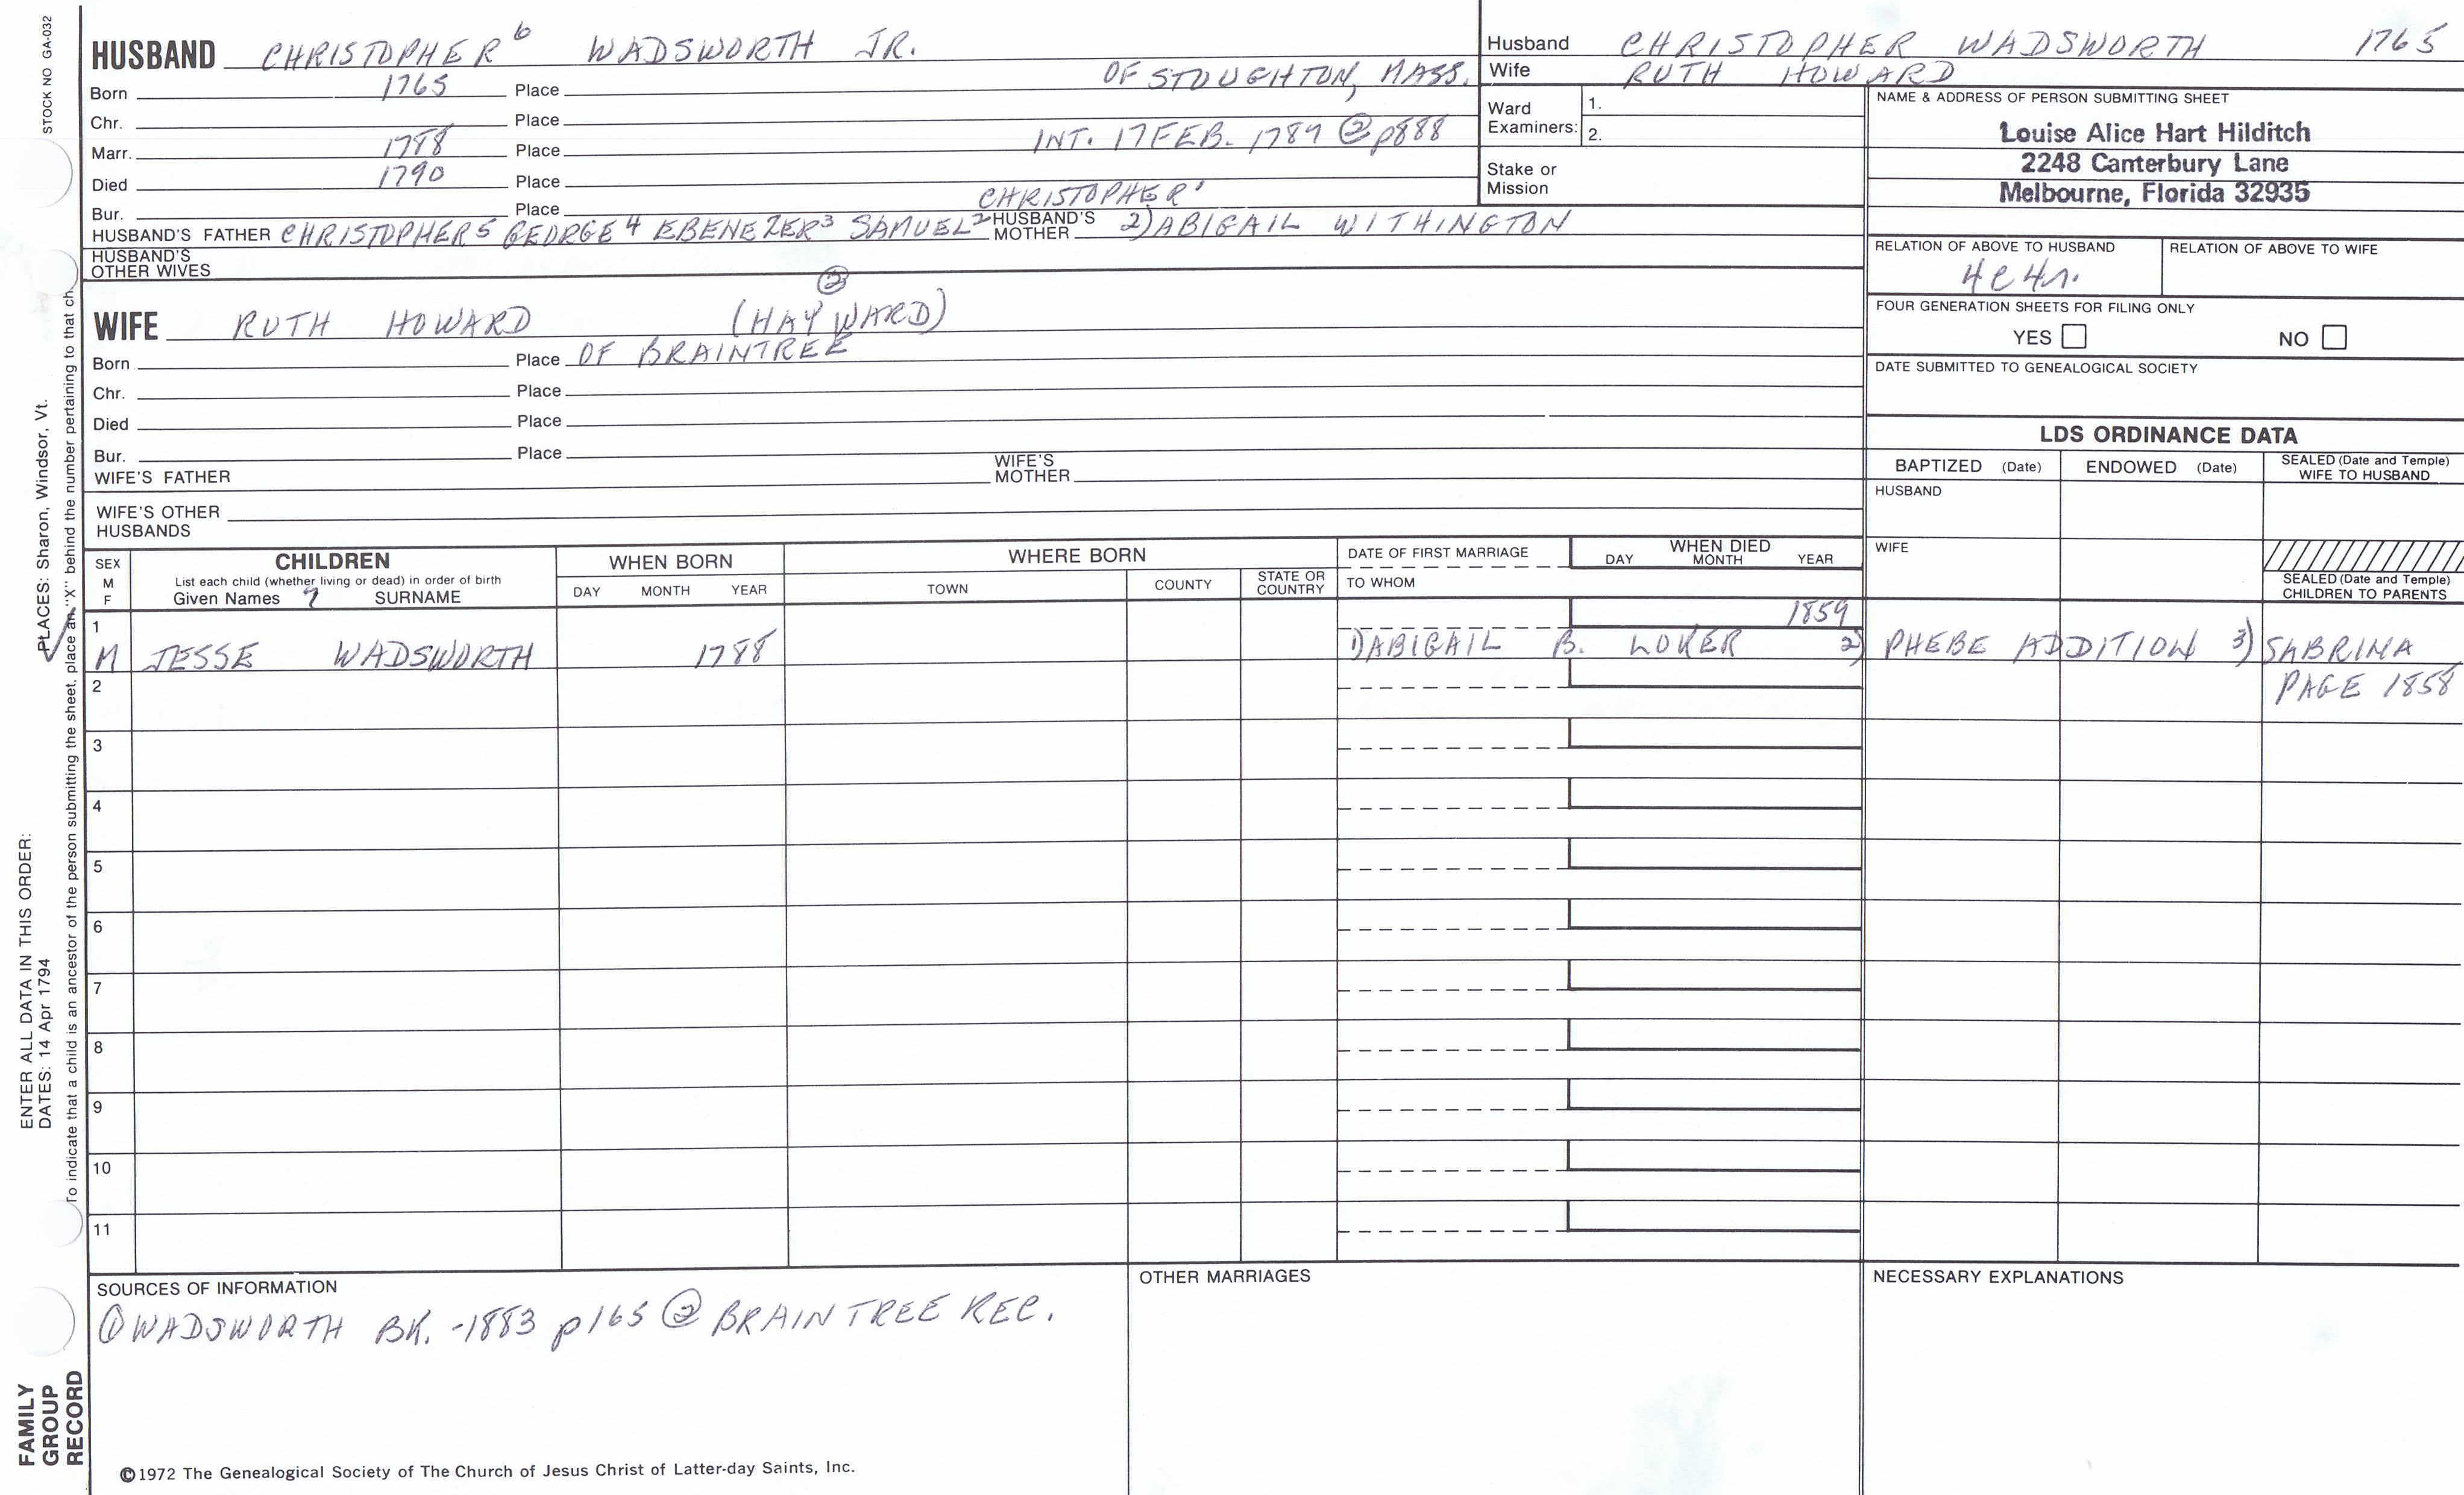 STOCK NO GA-032
HUSBAND CHRISTOPHER⁶ WADSWORTH JR.
Born 1765 Place OF STOUGHTON, MASS.
Chr. Place
Marr. 1788 Place INT. 17 FEB. 1789 ② p888
Died 1790 Place
Bur. Place CHRISTOPHER¹
HUSBAND'S FATHER CHRISTOPHER⁵ GEORGE⁴ EBENEZER³ SAMUEL² HUSBAND'S MOTHER 2) ABIGAIL WITHINGTON
HUSBAND'S
OTHER WIVES
②
WIFE RUTH HOWARD (HAYWARD)
Born Place OF BRAINTREE
Chr. Place
Died Place
Bur. Place
WIFE'S FATHER WIFE'S MOTHER
WIFE'S OTHER
HUSBANDS
Husband CHRISTOPHER WADSWORTH 1765
Wife RUTH HOWARD
Ward Examiners: 1.
2.
Stake or
Mission
NAME & ADDRESS OF PERSON SUBMITTING SHEET
Louise Alice Hart Hilditch
2248 Canterbury Lane
Melbourne, Florida 32935
RELATION OF ABOVE TO HUSBAND RELATION OF ABOVE TO WIFE
4C4r.
FOUR GENERATION SHEETS FOR FILING ONLY
YES NO
DATE SUBMITTED TO GENEALOGICAL SOCIETY
LDS ORDINANCE DATA
BAPTIZED (Date) ENDOWED (Date) SEALED (Date and Temple) WIFE TO HUSBAND
HUSBAND
WIFE
SEALED (Date and Temple)
CHILDREN TO PARENTS
SEX M F CHILDREN WHEN BORN WHERE BORN DATE OF FIRST MARRIAGE WHEN DIED
List each child (whether living or dead) in order of birth
Given Names 7 SURNAME DAY MONTH YEAR TOWN COUNTY STATE OR COUNTRY TO WHOM DAY MONTH YEAR
1 1859
M JESSE WADSWORTH 1788 1) ABIGAIL B. LOKER 2) PHEBE ADDITION 3) SABRINA
2 PAGE 1858
3
4
5
6
7
8
9
10
11
SOURCES OF INFORMATION OTHER MARRIAGES NECESSARY EXPLANATIONS
① WADSWORTH BK. -1883 p165 ② BRAINTREE REC.
©1972 The Genealogical Society of The Church of Jesus Christ of Latter-day Saints, Inc.
FAMILY
GROUP
RECORD
ENTER ALL DATA IN THIS ORDER:
DATES: 14 Apr 1794
PLACES: Sharon, Windsor, Vt.
To indicate that a child is an ancestor of the person submitting the sheet, place an "X" behind the number pertaining to that ch